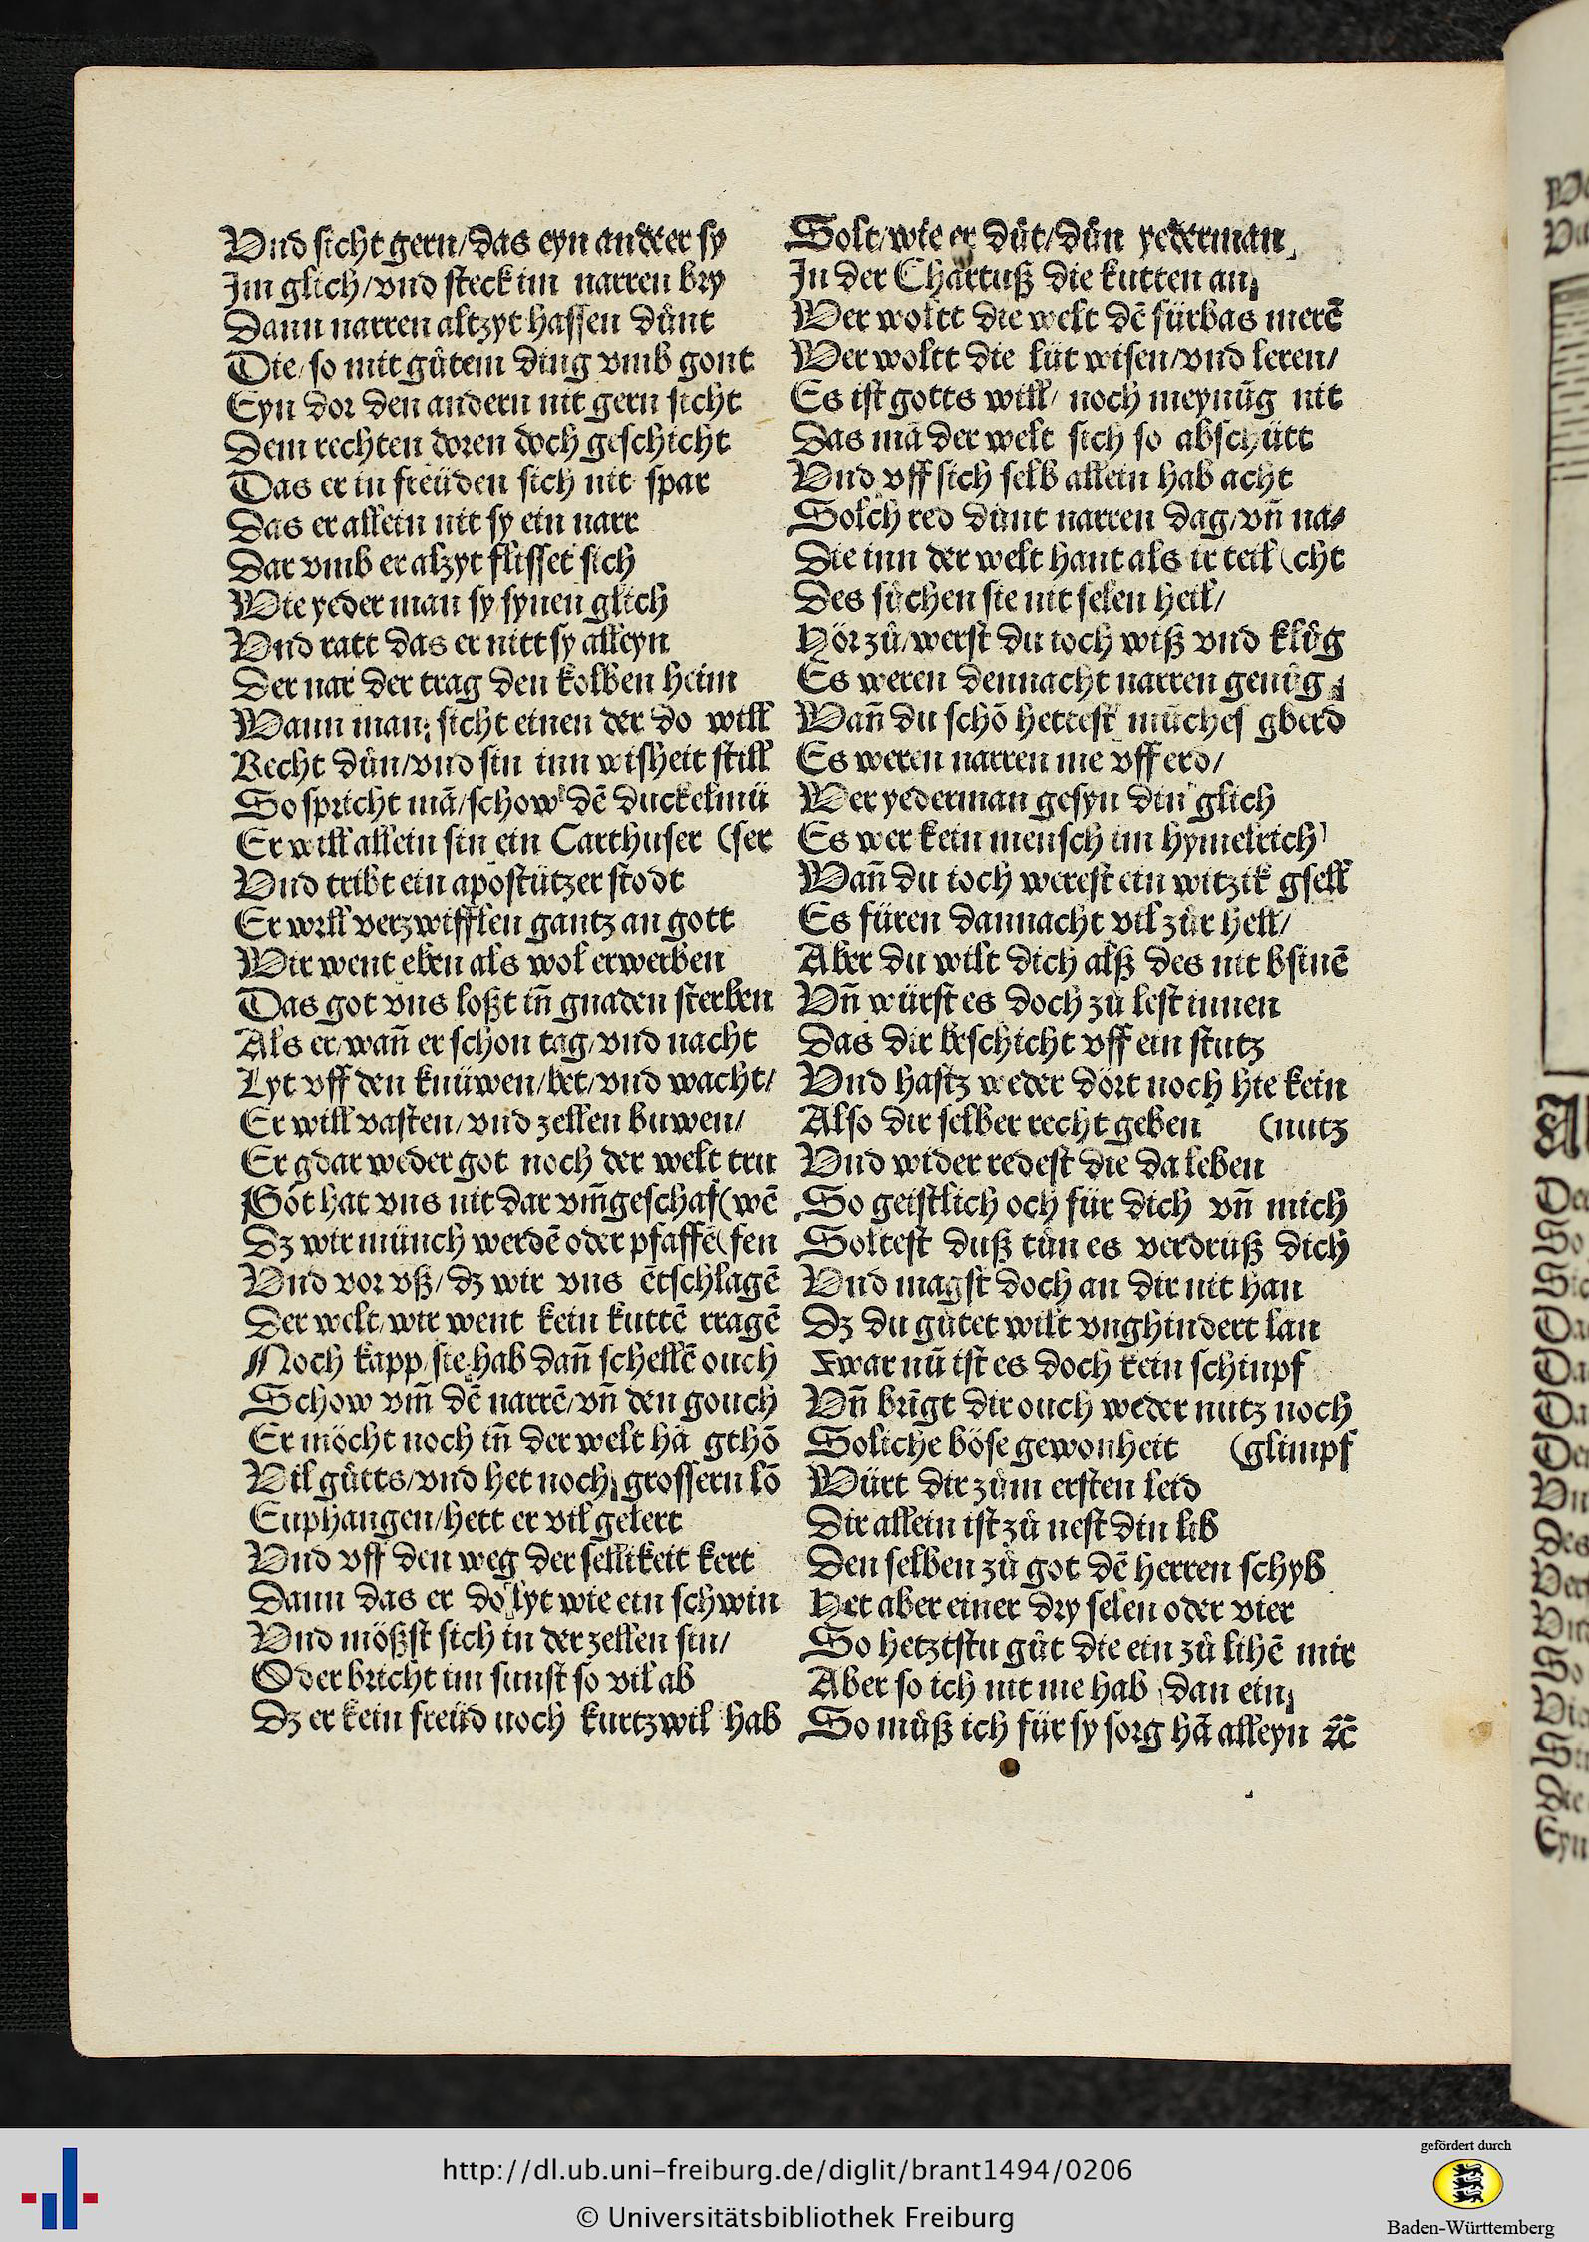 Vnd sicht gern/das eyn ander sy
Im glich/vnd steck im narren bry
Dann narren altzyt hassen důnt
Die/so mit gůtem ding vmb gont
Eyn dor den andern nit gern sicht
Dem rechten doren doch geschicht
Das er in freüden sich nit spar
Das er allein nit sy ein narr
Dar vmb er alzyt flisset sich
Wie yeder man sy synen glich
Vnd ratt das er nitt sy alleyn
Der nar der trag den kolben heim
Wann man; sicht einen der do will
Recht důn/vnd sin inn wisheit still
So spricht mā/schow dē duckelmü
Er will allein sin ein Carthuser (ser
Vnd tribt ein apostützer stodt
Er will verzwifflen gantz an gott
Wir went eben als wol erwerben
Das got vns loßt in̄ gnaden sterben
Als er/wan̄ er schon tag/vnd nacht
Lyt vff den knüwen/bet/vnd wacht/
Er will vasten/vnd zellen buwen/
Er gdar weder got noch der welt tru
Got hat vns nit dar vm̄geschaf(wē
Dz wir münch werdē oder pfaffē(fen
Vnd vor vß/dz wir vns ētschlagē
Der welt/wir went kein kuttē rragē
Noch kapp/sie hab dan̄ schellē ouch
Schow vm̄ dē narrē/vn̄ den gouch
Er möcht noch in̄ der welt hā gthō
Vil gůtts/vnd het noch grossern lō
Enphangen/hett er vil gelert
Vnd vff den weg der sellikeit kert
Dann das er do lyt wie ein schwin
Vnd mößst sich in der zellen sin/
Oder bricht im sunst so vil ab
Dz er kein freüd noch kurtzwil hab
Solt/wie er důt/důn yederman
In der Chartuß die kutten an
Wer woltt die welt dē fürbas merē
Wer woltt die lüt wisen/vnd leren/
Es ist gotts will/ noch meynūg nit
Das mā der welt sich so abschütt
Vnd vff sich selb allein hab acht
Solch red dunt narren dag/vn̄ na⸗
Die inn der welt hant als ir teil (cht
Des sůchen sie nit selen heil/
Hör zů/werst du ioch wiß vnd klůg
Es weren dennacht narren genůg
Wan̄ du schō hettest münches gberd
Es weren narren me vff erd/
Wer yederman gesyn din glich
Es wer kein mensch im hymelrich
Wan̄ du ioch werest ein witzik gsell
Es füren dannacht vil zůr hell/
Aber du wilt dich alß des nit bsinē
Vn̄ würst es doch zů lest innen
Das dir beschicht vff ein stutz
Vnd hastz weder dört noch hie kein
Also dir selber recht geben (nutz
Vnd wider redest die da leben
So geistlich och für dich vn̄ mich
Soltest duß tůn es verdrüß dich
Vnd magst doch an dir nit han
Dz du gůtet wilt vnghindert lan
Zwar nū ist es doch kein schimpf
Vn̄ brīgt dir ouch weder nutz noch
Soliche böse gewonheit (glimpf
Würt dir zům ersten leid
Dir allein ist zů nest din lib
Den selben zů got dē herren schyb
Het aber einer dry selen oder vier
So hetzistu gůt die ein zů lihē mir
Aber so ich nit me hab dan ein
So můß ich für sy sorg hā alleyn ⁊c̄
http://dl.ub.uni-freiburg.de/diglit/brant1494/0206
© Universitätsbibliothek Freiburg
gefördert durch
Baden-Württemberg